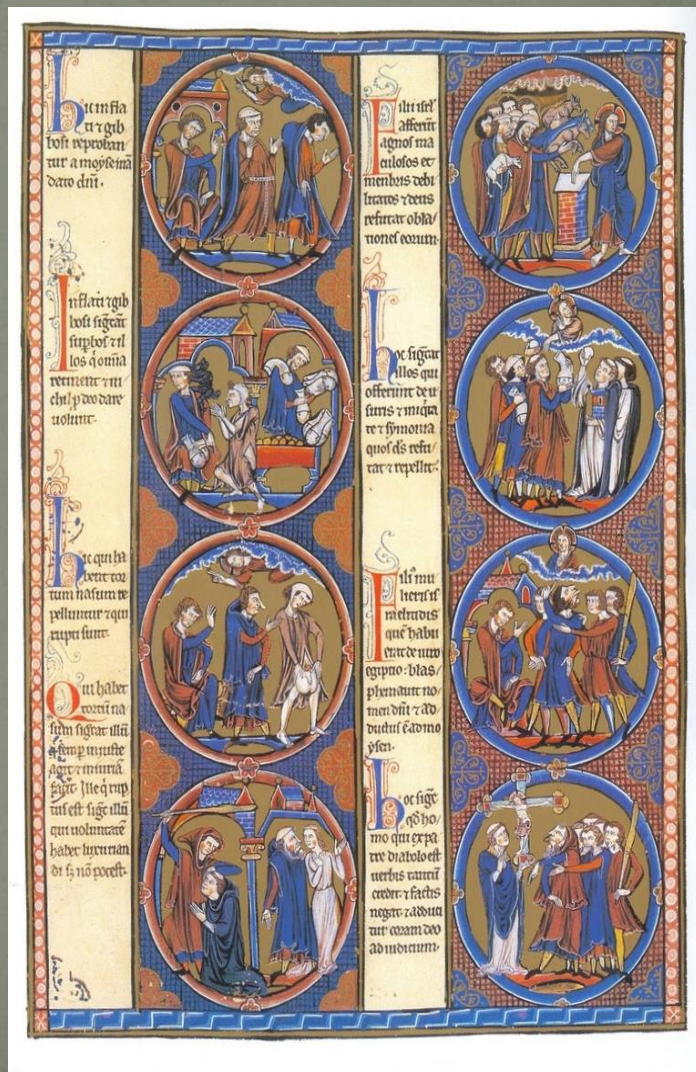 hic infla
ti ⁊ gib
bosi reproban
tur a moyse in ma
dato dni.
Inflati ⁊ gib
bosi sigcat
supbos ⁊ il
los q̇ omnia
retinent ⁊ ni
chil p deo dare
uolunt.
hic qui ha
bent tor
tum nasum re
pelluntur ⁊ qui
rupti sunt.
Qui habet
tortū na
sum sigcat illū
q semp iniuste
agit ⁊ iniuriā
facit. Ille q̇ rup
tus est sigc illū
qui uoluntatē
habet luxurian
di s; nō potest.
Filii isrl
afferunt
agnos ma
culosos et
membris debi
litatos ⁊ deus
refutat obla
tiones eorum.
hoc sigcat
illos qui
offerunt de u
suris ⁊ iniq̇ta
te ⁊ symonia
quos ds refu
tat ⁊ repellit.
Filius mu
lieris is
raelitidis
quē habu
erat de uiro
egiptio: blas
phemauit no
men dni ⁊ ad
ductus ē ad mo
ysen.
hoc sigc
qd ho
mo qui ex pa
tre diabolo est
uerbis tantū
credit ⁊ factis
negat ⁊ adduci
tur coram deo
ad iudicium.